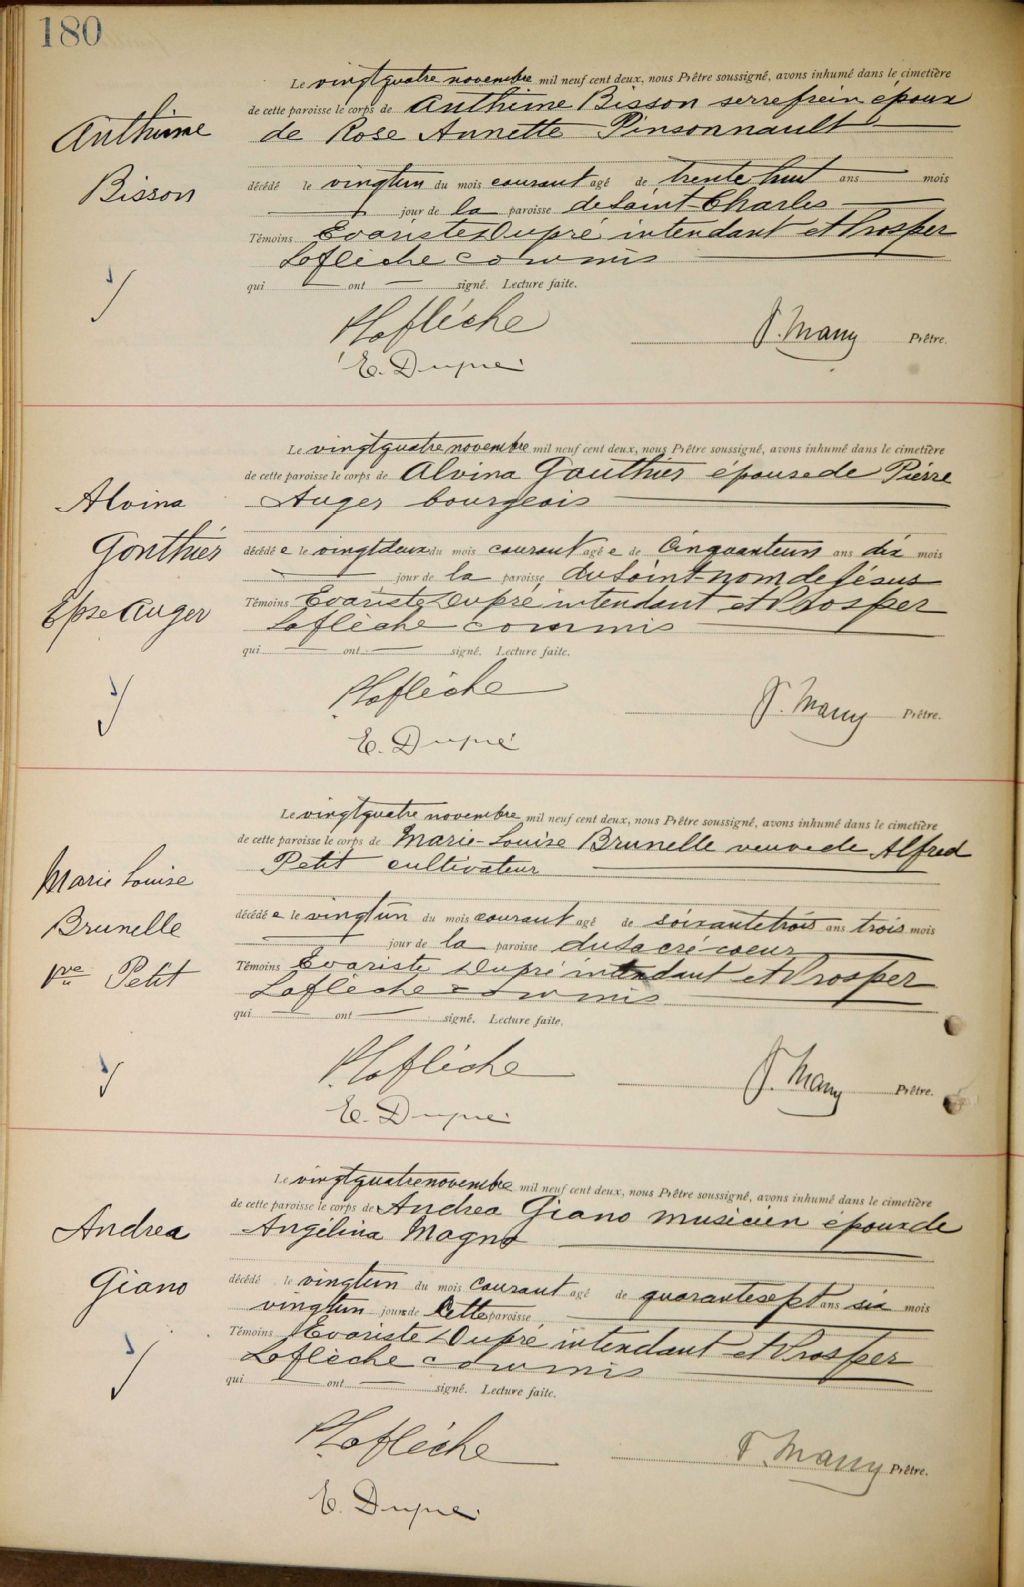 180
Le vingtquatre novembre mil neuf cent deux, nous Prêtre soussigné, avons inhumé dans le cimetière
de cette paroisse le corps de Anthime Bisson serrefrein époux
Anthime
de Rose Annette Pinsonnault
Bisson
décédé le vingtun du mois courant agé de trente huit ans mois
jour de la paroisse de Saint-Charles
Témoins Evariste Dupré intendant et Prosper
Laflèche commis
qui ont signé. Lecture faite.
P. Laflèche
J. Many Prêtre.
E. Dupré
Le vingtquatre novembre mil neuf cent deux, nous Prêtre soussigné, avons inhumé dans le cimetière
de cette paroisse le corps de Alvina Gauthier épouse de Pierre
Alvina
Auger bourgeois
Gonthier
décédé e le vingtdeux du mois courant agé e de cinquanteun ans dix mois
jour de la paroisse du Saint-nom de Jésus
Epse Auger
Témoins Evariste Dupré intendant et Prosper
Laflèche commis
qui ont signé. Lecture faite.
P. Laflèche
J. Many Prêtre.
E. Dupré
Le vingtquatre novembre mil neuf cent deux, nous Prêtre soussigné, avons inhumé dans le cimetière
de cette paroisse le corps de Marie-Louise Brunelle veuve de Alfred
Marie Louise
Petit cultivateur
Brunelle
décédé e le vingtun du mois courant agé de soixantetrois ans trois mois
jour de la paroisse du Sacré-coeur
Vve Petit
Témoins Evariste Dupré intendant et Prosper
Laflèche commis
qui ont signé. Lecture faite.
P. Laflèche
J. Many Prêtre.
E. Dupré
Le vingtquatre novembre mil neuf cent deux, nous Prêtre soussigné, avons inhumé dans le cimetière
de cette paroisse le corps de Andrea Giano musicien époux de
Andrea
Angélina Magno
Giano
décédé le vingtun du mois courant agé de quarantesept ans six mois
vingtun jours de Cette paroisse
Témoins Evariste Dupré intendant et Prosper
Laflèche commis
qui ont signé. Lecture faite.
P. Laflèche
J. Many Prêtre.
E. Dupré